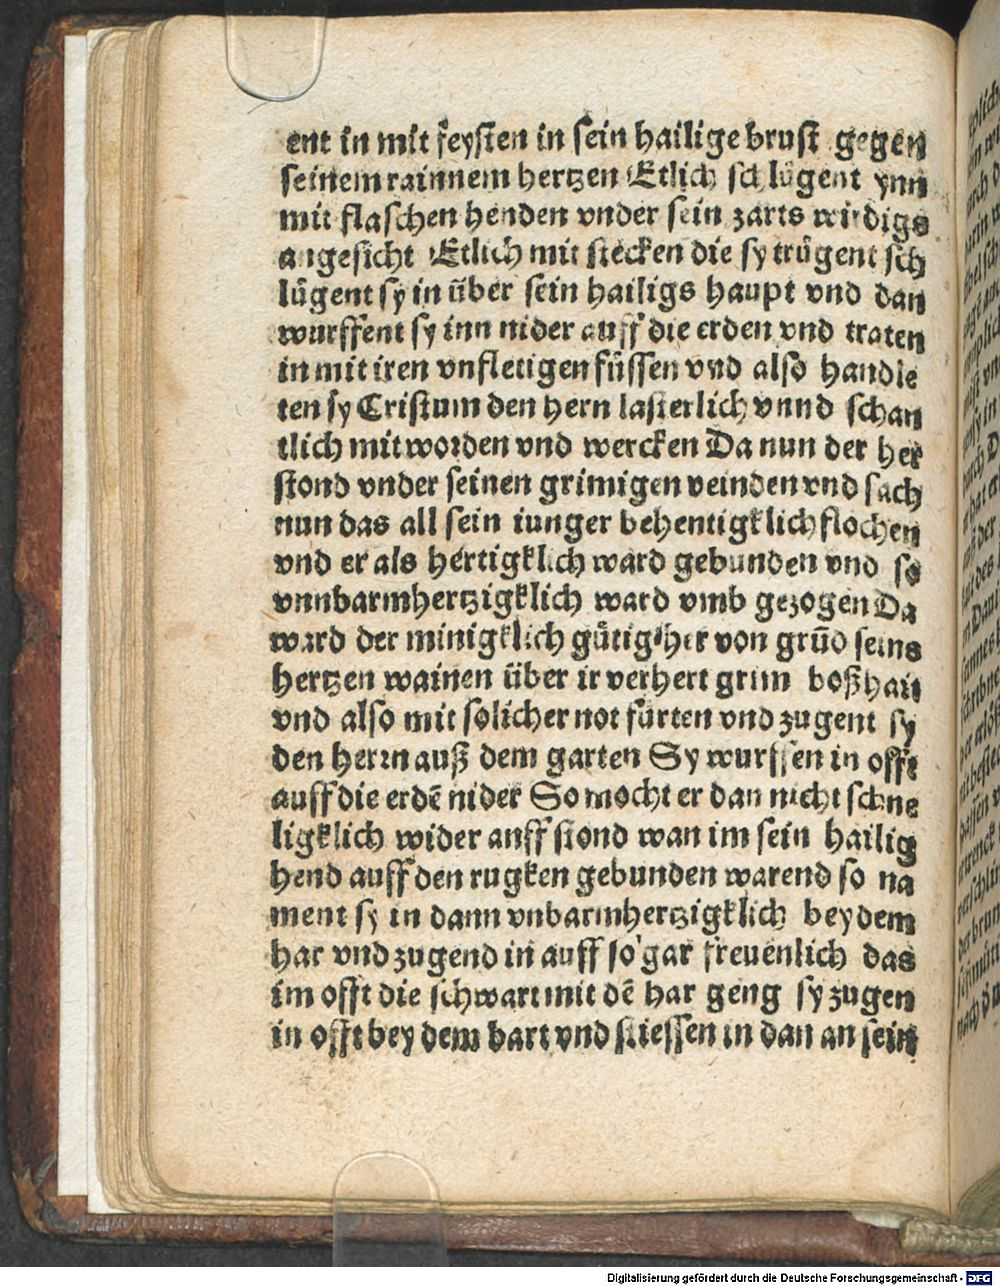 ent in mit feysten in sein hailige brust gegen
seinem rainnem hertzen Etlich schlůgent ynn
mit flaschen henden vnder sein zarts wirdigs
angesicht Etlich mit stecken die sy trůgent sch
lůgent sy in über sein hailigs haupt vnd dan
wurffent sy inn nider auff die erden vnd traten
in mit iren vnfletigen füssen vnd also handle
ten sy Cristum den hern lasterlich vnnd schan
tlich mit worden vnd wercken Da nun der her
stond vnder seinen grimigen veinden vnd sach
nun das all sein iunger behentigklich flochen
vnd er als hertigklich ward gebunden vnd so
vnnbarmhertzigklich ward vmb gezogen Da
ward der minigklich gůtig her von grūd seins
hertzen wainen über ir verhert grim boßhait
vnd also mit solicher not fůrten vnd zugent sy
den herrn auß dem garten Sy wurffen in offt
auff die erdē nider So mocht er dan nicht schne
ligklich wider auff stond wan im sein hailig
hend auff den rugken gebunden warend so na
ment sy in dann vnbarmhertzigklich bey dem
har vnd zugend in auff so gar freuenlich das
im offt die schwart mit dē har geng sy zugen
in offt bey dem bart vnd stiessen in dan an sein
Digitalisierung gefördert durch die Deutsche Forschungsgemeinschaft - DFG